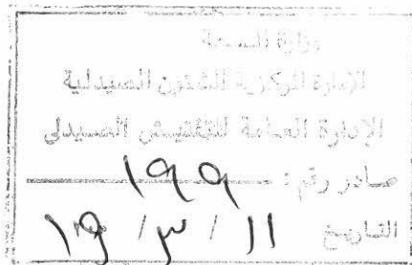 وزارة الصحة
الإدارة المركزية للشئون الصيدلية
الإدارة العامة للتفتيش الصيدلى
صادر رقم : ١٩٩
التاريخ ١١ / ٣ / ١٩